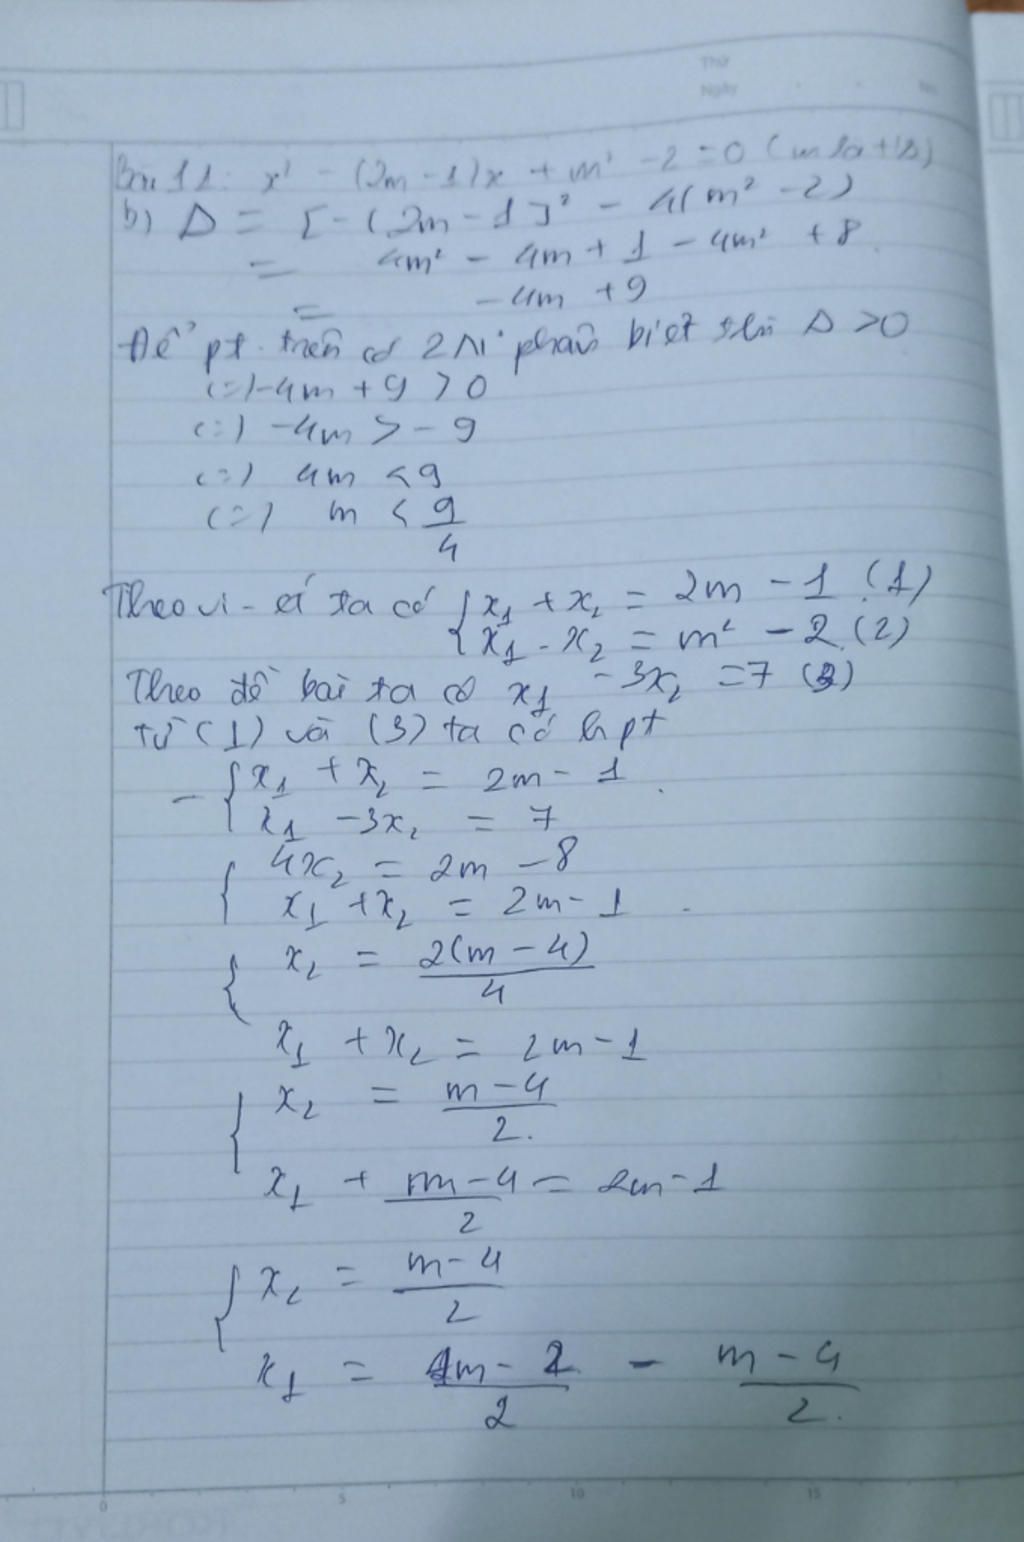 Thứ
Ngày No.
Bài 11: x² - (2m-1)x + m² -2 =0 (m là t/s)
b) Δ = [-(2m-1]² - 4(m² -2)
= 4m² - 4m + 1 - 4m² + 8
= -4m + 9
Để pt trên có 2 N⁰ phân biệt thì Δ >0
(=) -4m + 9 > 0
(=) -4m > - 9
(=) 4m < 9
(=) m < 9/4
Theo vi-ét ta có { x₁ + x₂ = 2m - 1 (1)
x₁ . x₂ = m² - 2 (2)
Theo đề bài ta có x₁ - 3x₂ = 7 (3)
từ (1) và (3) ta có hpt
- { x₁ + x₂ = 2m - 1
x₁ - 3x₂ = 7
{ 4x₂ = 2m - 8
x₁ + x₂ = 2m - 1
{ x₂ = 2(m - 4)/4
x₁ + x₂ = 2m - 1
{ x₂ = m - 4/2
x₁ + m - 4/2 = 2m - 1
{ x₂ = m - 4/2
x₁ = 4m - 2/2 - m - 4/2
0 5 10 15